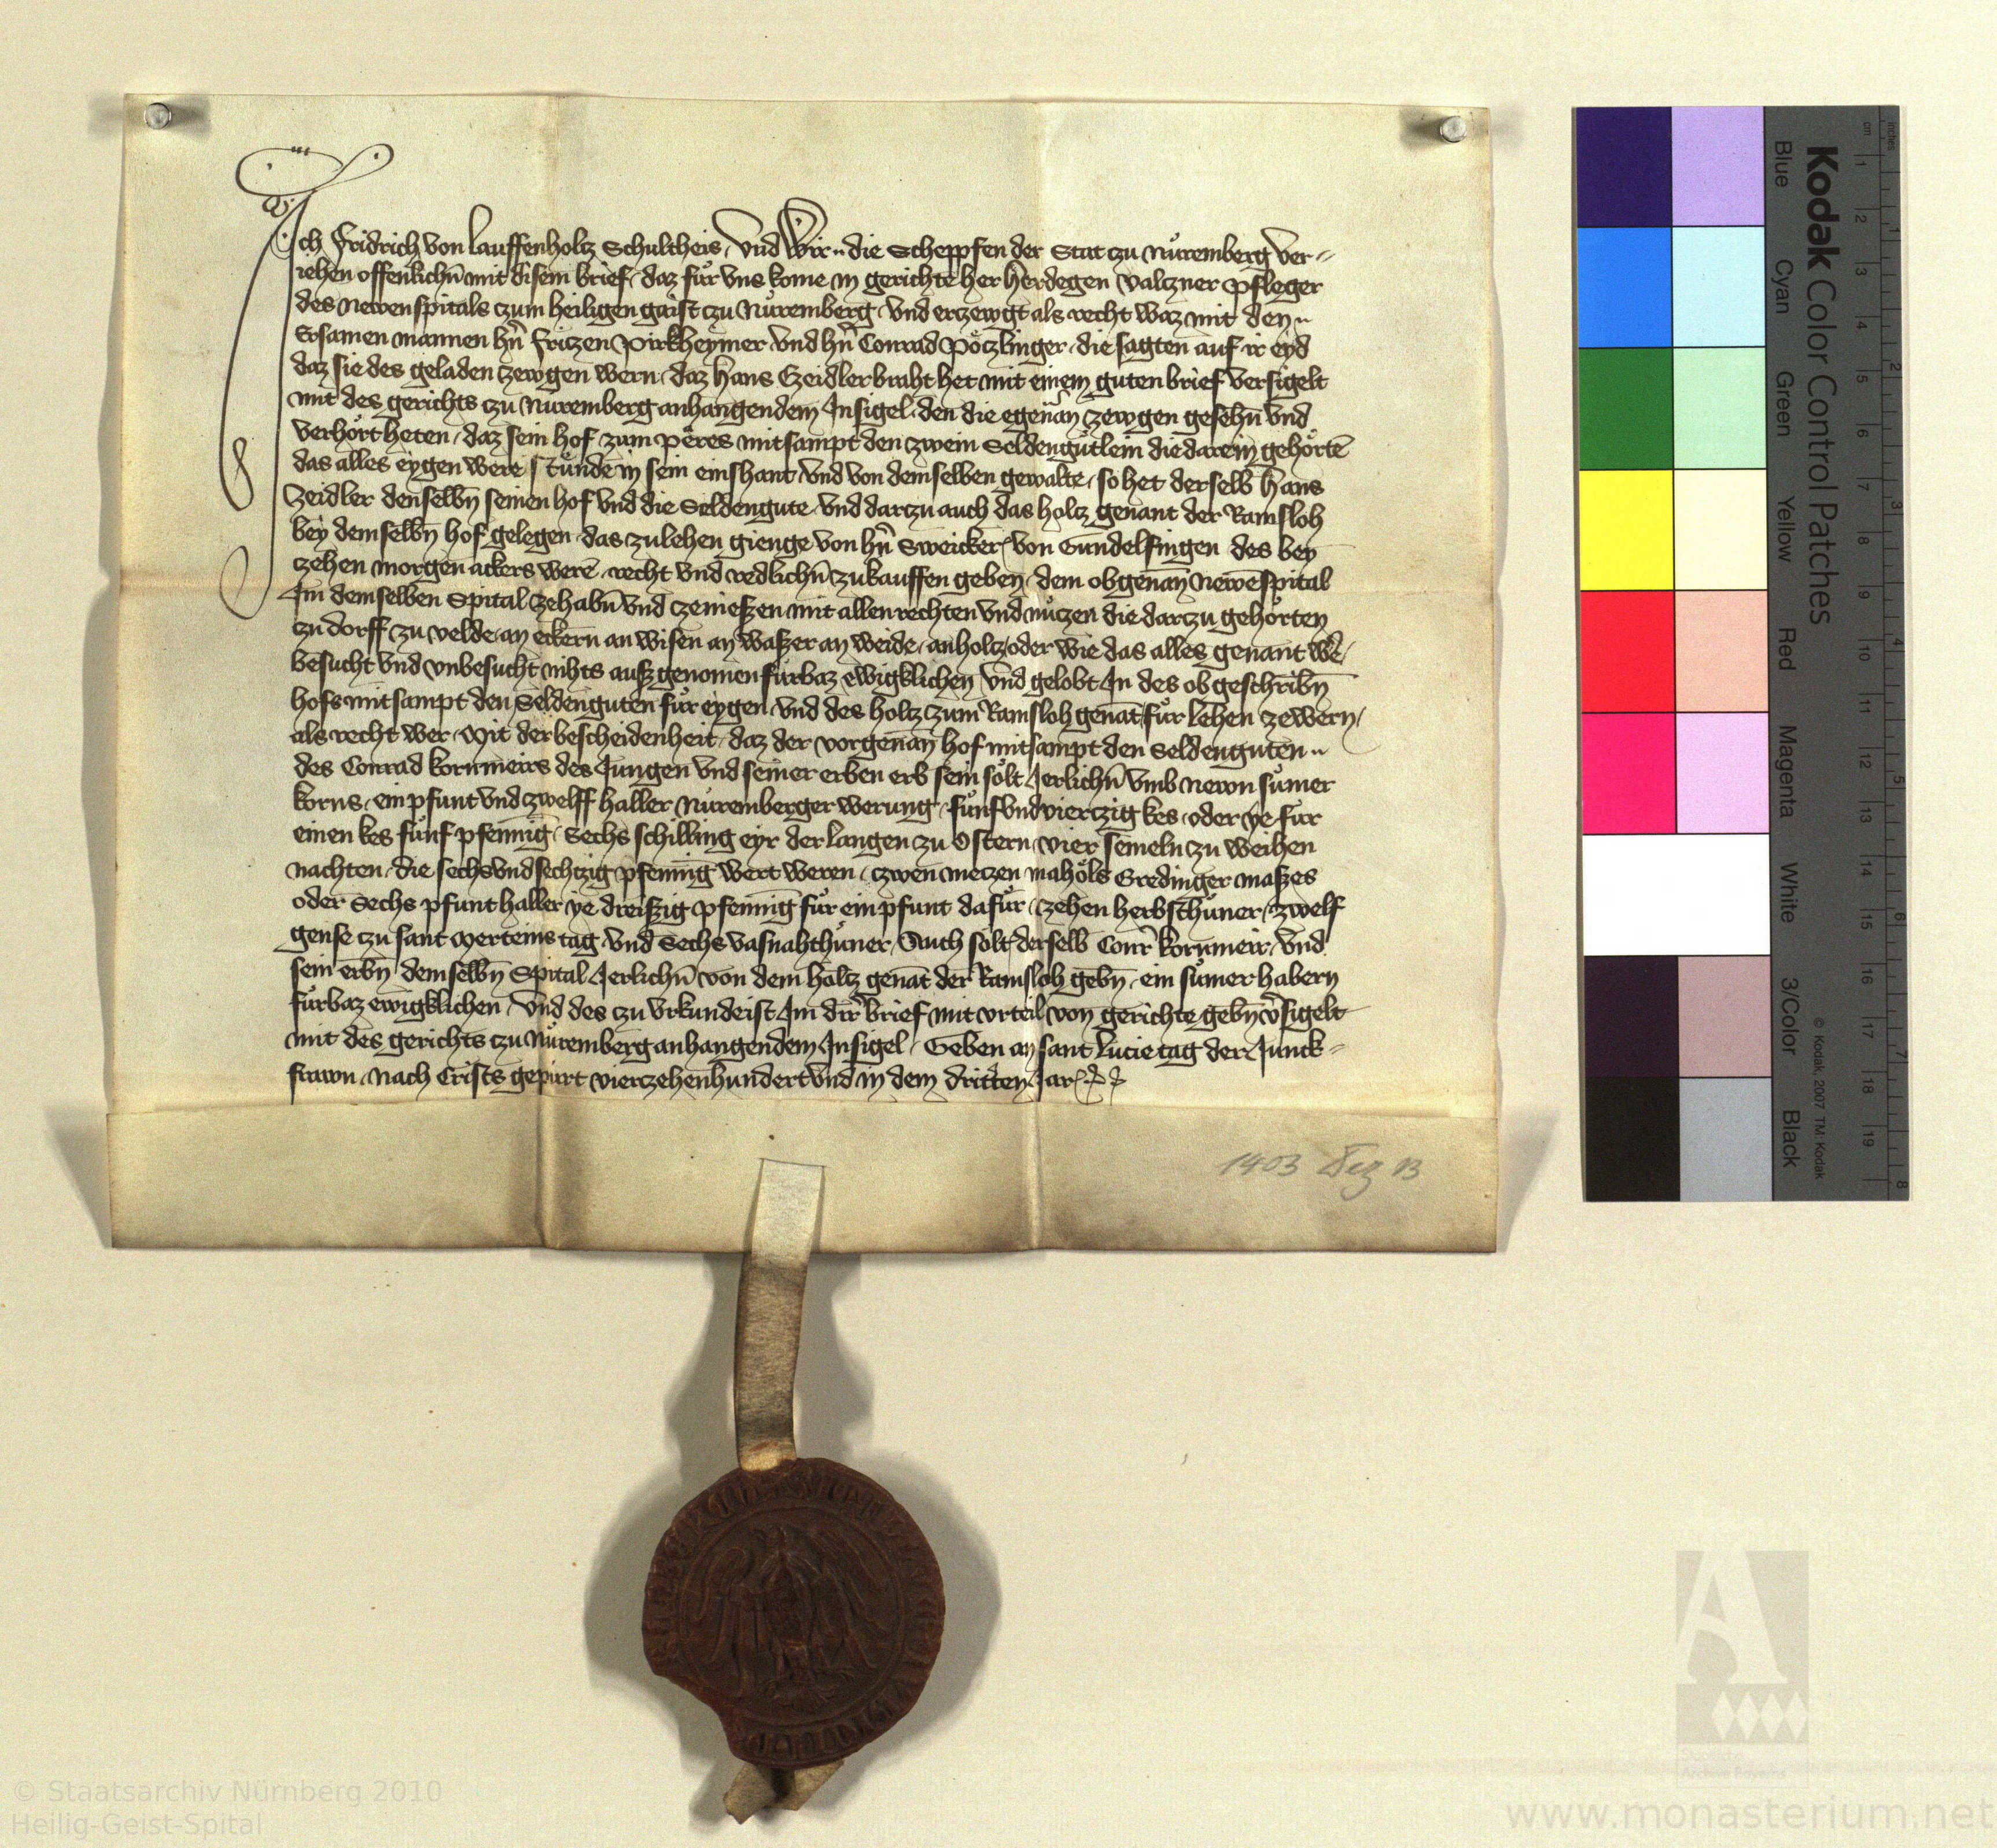 Ich Fridrich von Lauffenholtz Schultheis, vnd Wir die Scheppfen der Stat zu Nůremberg ver-
iehen offenlichn̄ mit disem brief, daz fůr vns kome in gerichte her Herdegen Valczner Pfleger
des Newenspitals czum heiligen gaist czu Nůremberg vnd erzewgt als recht waz mit den
Ersamen mannen hn̄ Friczen Pirkheymer vnd hn̄ Conrad Pötzlinger, die sagten auf ir eyd
daz sie des geladen zewgen wern, daz Hans Czeidler braht het mit einem guten brief versigelt
mit des gerichts czu Nůremberg anhangendem Insigel, den die egenan̄ zewgen gesehn̄ vnd
verhört heten, daz sein hof zum Peres mitsampt den zwein Seldengůtlein die darein gehörtē
das alles eygen were stůnde in sein einshant vnd von demselben gewalte, so het derselb Hans
Zeidler denselbn̄ seinen hof vnd die Seldengute vnd darczu auch das holtz genant der Ramsloh
bey demselbn̄ hof gelegen das zulehen gienge von hn̄ Sweicker von Gundelfingen des bey
czehen morgen ackers werē, recht vnd redlichn̄ zukauffen geben, dem obgenan̄ Newēspital
Im demselben Spital zehabn̄ vnd zeniessen mit allen rechten vnd nuczen die darczu gehörten
zu dorff zu velde, an eckern an wisen an wasser an weide, an holtz, oder wie das alles genant we
besucht vnd vnbesucht nihts ausz genomen fůrbaz ewigklichen, vnd gelobt In des obgeschribn̄
hofs mitsampt den Seldenguten fůr eygen, vnd des holtz zum Ramsloh genāt, fůr lehen zewern,
als recht wer, Mit der bescheidenheit, daz der vorgenan̄ hof mitsampt den Seldenguten
des Conrad Kornmeirs des Jungen vnd seiner erben erb sein sölt Jerlichn̄ vmb newn sůmer
korns, ein pfunt vnd zwelff haller Nůremberger werung, fůnfvndvierczig kes, oder ye fůr
einen kes fůnf pfennig, Sechs schilling eyr der langen zu Ostern, vier semeln zu weihen
nachten, die sechsvndsechtzig pfennig wert weren, czwen meczen mahöls Gredinger masses
oder Sechs pfunt haller ye dreissig pfennig fůr ein pfunt dafůr, zehen herbsthůner, zwelf
gense czu sant Merteins tag, vnd Sechs vasnahthůner, Auch sölt derselb Conr̄ Kornmeir, vnd
sein erbn̄ demselbn̄ Spital Jerlichn̄ von dem holtz genāt der Ramsloh gebn̄, ein sůmer habern
fůrbaz ewigklichen, Vnd des zu vrkunde ist Im dir̄ brief mit vrteil von gerichte gebn̄ v̄sigelt
mit des gerichts czu Nůremberg anhangendem Insigel, Geben an sant Lucie tag der Junck-
frawn, Nach Crists gepurt vierczehenhundert vnd in dem dritten Jar
1403 Dez 13
Kodak Color Control Patches
Blue Cyan Green Yellow Red Magenta White 3/Color Black
© Kodak, 2007 TM: Kodak
cm 1 2 3 4 5 6 7 8 9 10 11 12 13 14 15 16 17 18 19
inches 1 2 3 4 5 6 7 8
© Staatsarchiv Nürnberg 2010
Heilig-Geist-Spital
www.monasterium.net